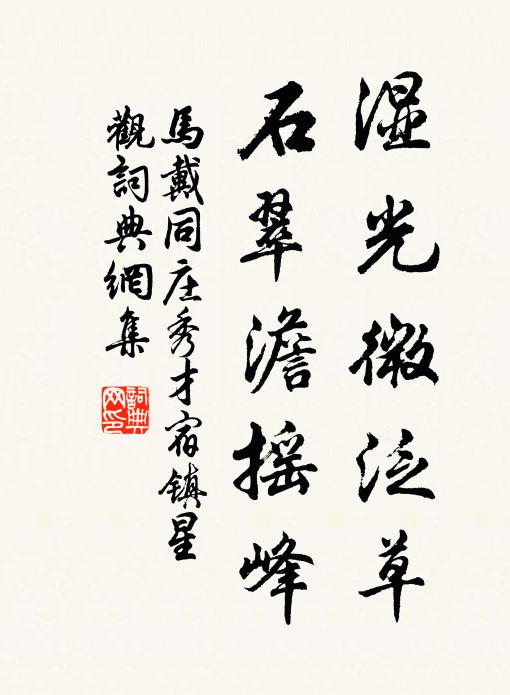 湿光微泛草
石翠澹摇峰
馬戴同庄秀才宿镇星
觀詞典網集
詞典网印